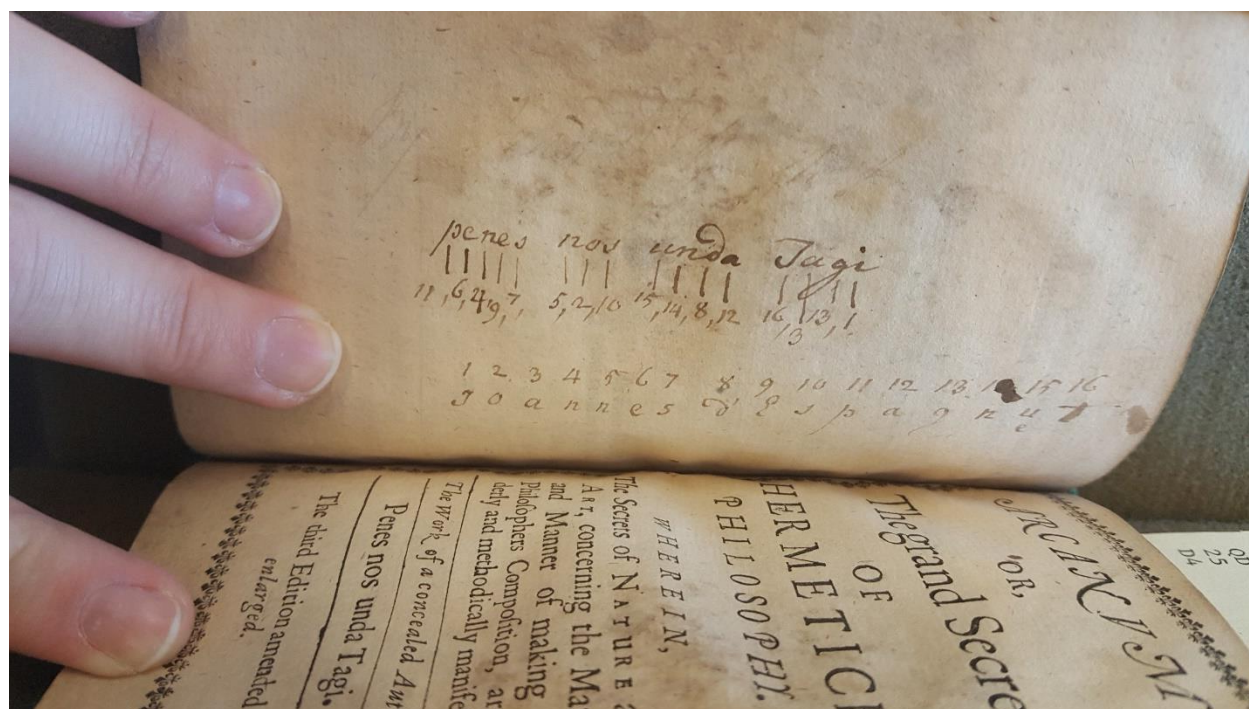 penes nos unda Tagi
11, 6, 4, 9, 7, 5, 2, 10 15, 14, 8, 12 16 13, 1.
3
1 2 3 4 5 6 7 8 9 10 11 12 13 15 16
J o a n n e s d E s p a g n u T
e
ARCANUM
OR,
The grand Secre
OF
HERMETIC
PHILOSOPHY.
WHEREIN,
The Secrets of NATURE
ART, concerning the Ma
and Manner of making
Philoſophers Compoſition, ar
derly and methodically manife
The Work of a concealed Aut
Penes nos unda Tagi.
The third Edition amended
enlarged.
QD
25
D4